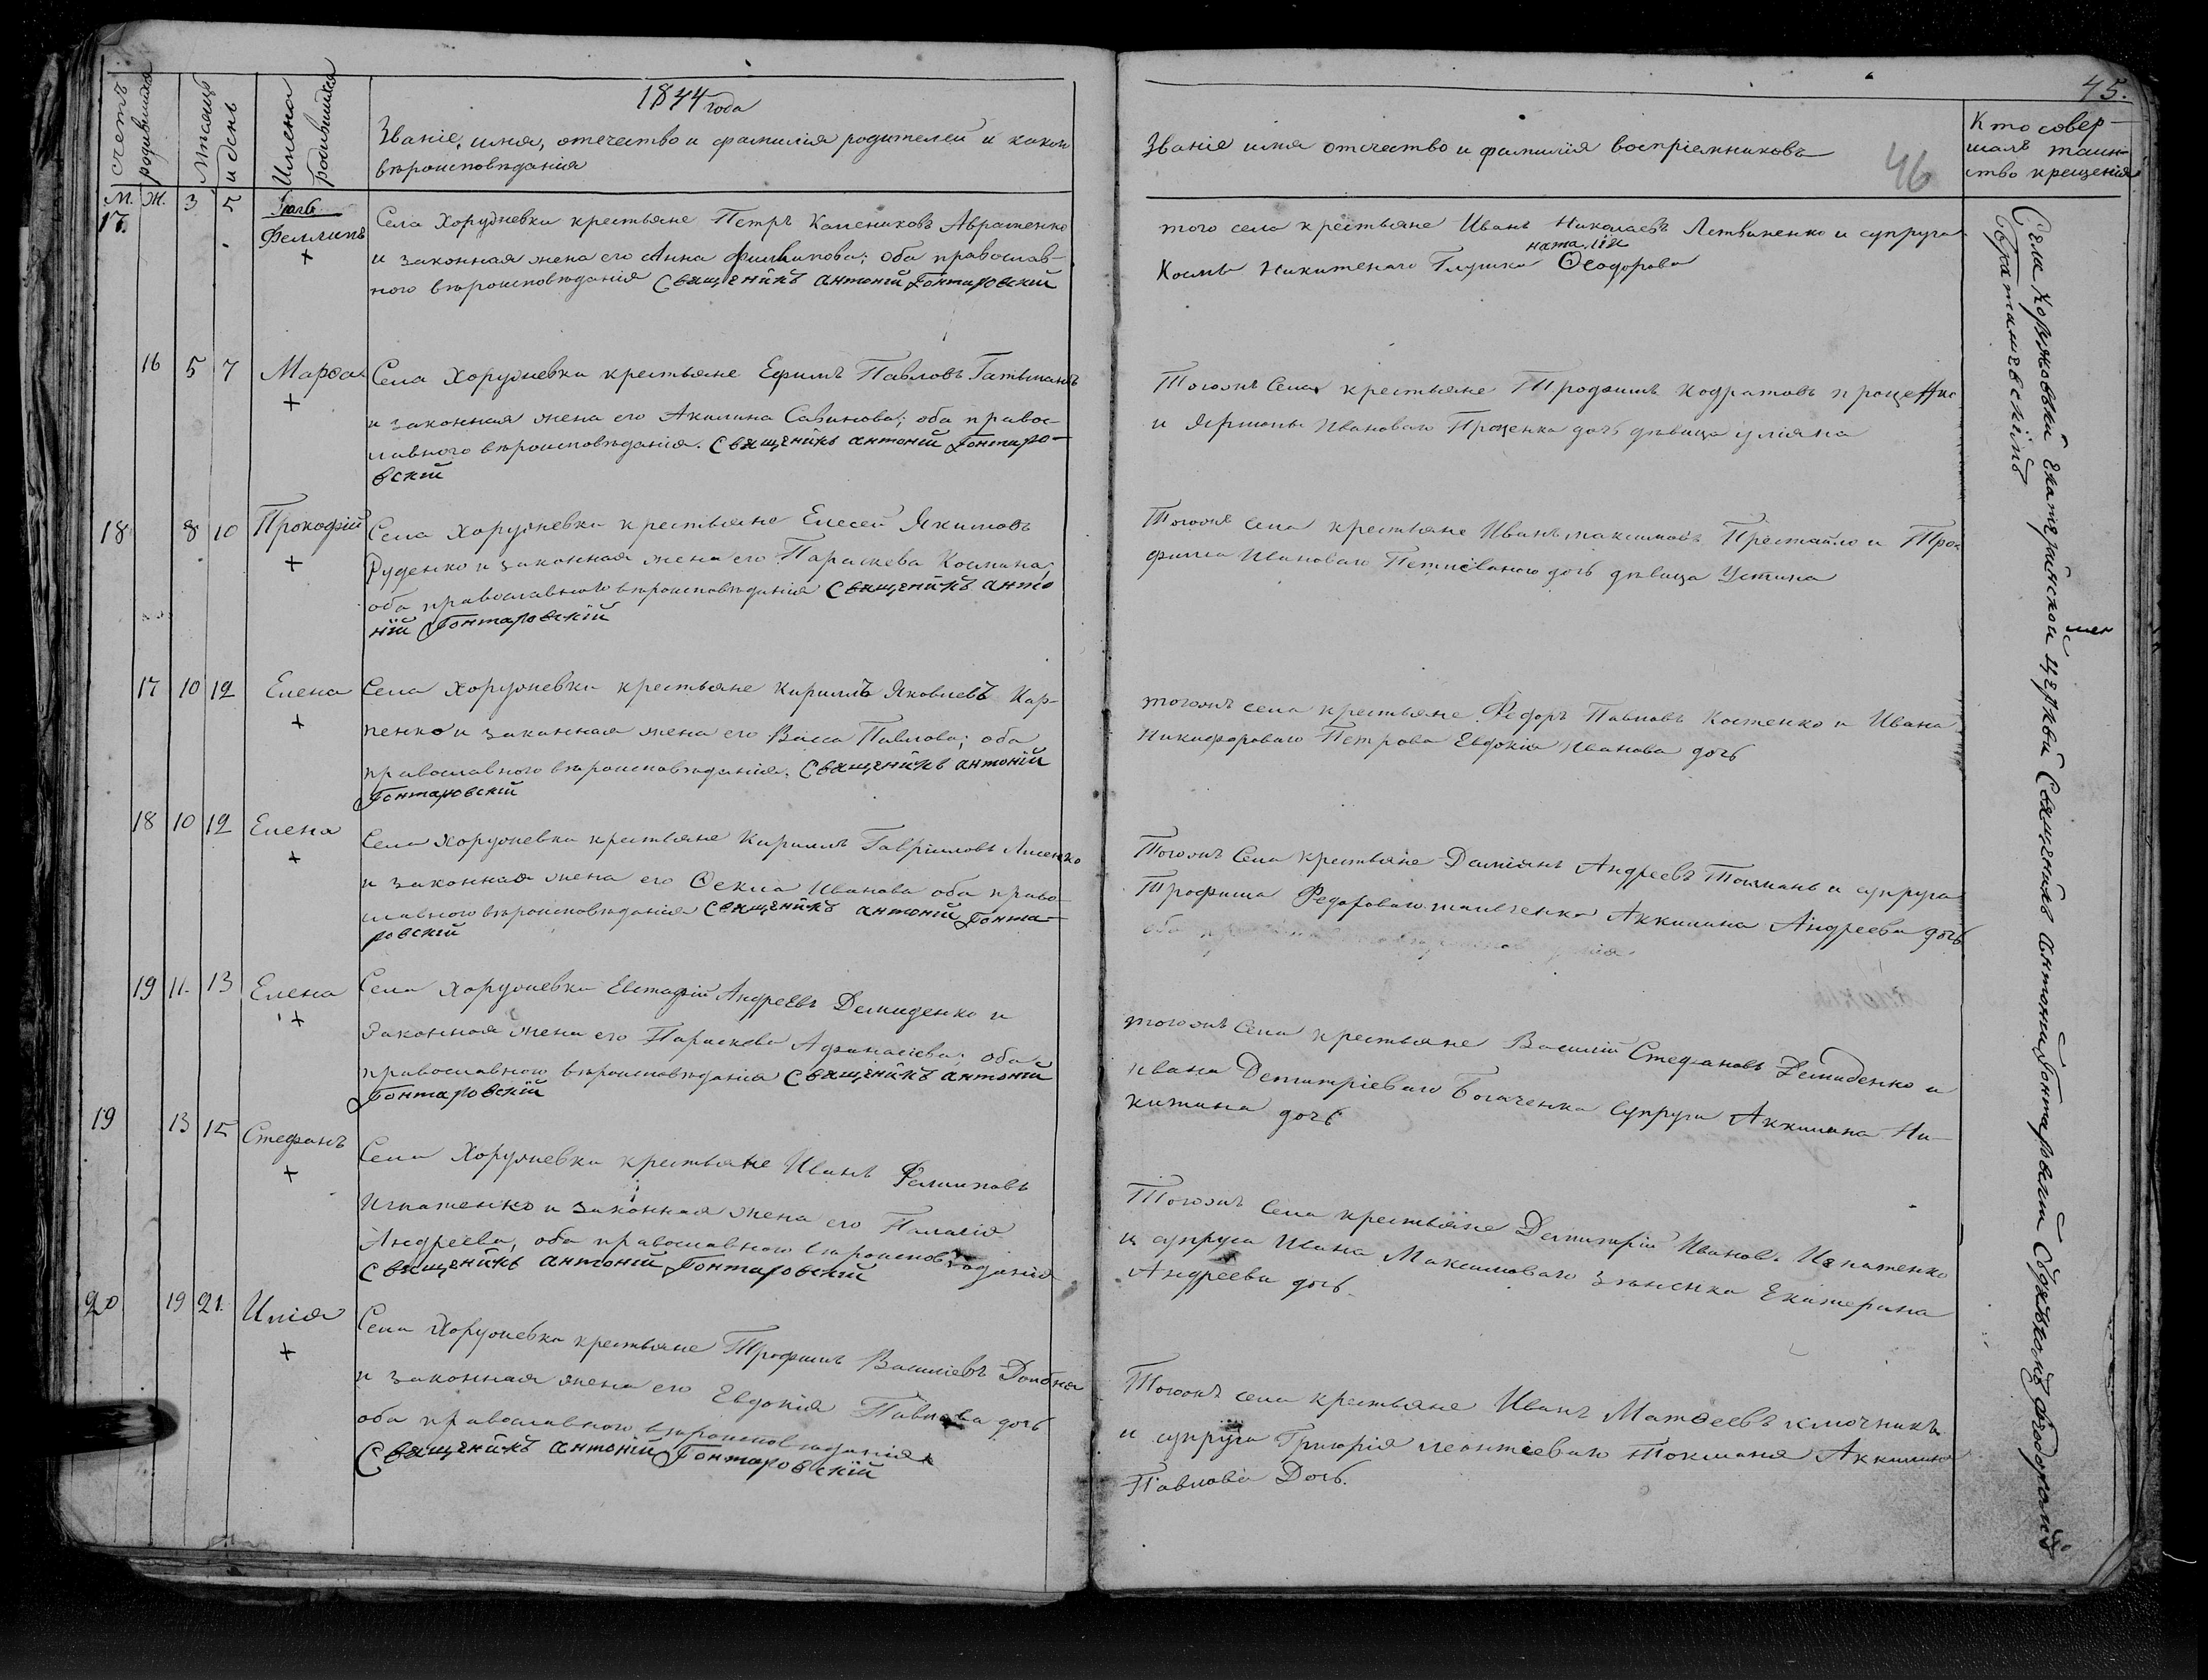 45.
46
1844 года
счетъ родившихся
Мѣсяцъ и день
Имена родившихся
Званіе, имя, отечество и фамилія родителей и какого
вѣроисповѣданія
Званіе имя отечество и фамилія воспріемниковъ
Кто совер-
шалъ таин-
ство крещенія
М. Ж.
17. 3 5
Іюль
Филиппъ
+
Села Хоружевки крестьяне Петръ Авраменко
и законная жена его Анна Филипова; оба православ-
ного вѣроисповѣданія Священикъ антоній Гонтаровскій
того села крестьяне Иванъ Николаевъ Летвиненко и супруга
наталія
Космы Никитенаго Глушка Ѳеодорова
16 5 7 Марѳа
+
Села Хоружевки крестьяне Ефимъ Павловъ Гатьманъ
и законная жена его Акилина Савинова; оба правос-
лавного вѣроисповѣданія. Священикъ антоній Гонтаро-
вскій
Тогожъ Села крестьяне Трофимъ Кодратовъ проценко
и Ивановаго Проценка дочь дѣвица уліяна
18 8 10 Прокофій
+
Села Хоружевки крестьяне Елесей Якимовъ
Руденко и законная жена его Параскева Космина;
оба православного вѣроисповѣданія Священикъ анто
ній Гонтаровскій
Тогожъ села крестьяне Иванъ максимовъ Престайло и Тро
фима Ивановаго дочь дѣвица Устина
17 10 12 Елена
+
Села Хоружевки крестьяне Кирилъ Яковлевъ Кар-
пенко и законная жена его Васса Павлова; оба
православного вѣроисповѣданія. Священикъ антоній
Гонтаровскій
тогожъ села крестьяне Федоръ Павловъ Костенко и Ивана
Никифороваго Петрова Евдокія Иванова дочь
18 10 12 Елена
+
Села Хоружевки крестьяне Кирилъ Гавріиловъ Лисенко
и законная жена его Ѳекла Иванова оба право-
славного вѣроисповѣданія Священикъ антоній Гонта-
ровскій
Тогожъ Села крестьяне Даміянъ Андреевъ Токмань и супруга
Трофима Федороваго Аккилина Андреева дочь
19 11. 13 Елена
+
Села Хоружевки Евстафій Андреевъ Демиденко и
законная жена его Параскева Афанасіева; оба
православного вѣроисповѣданія Священикъ антоній
Гонтаровскій
тогожъ Села крестьяне Василій Стефановъ Демиденко и
ивана Демитріеваго Богаченка Супруга Аккилина Ни-
китина дочь
19 13 15 Стефанъ
+
Села Хоружевки крестьяне Иванъ Филиповъ
Игнатенко и законная жена его Палагія
Андреева, оба православного вѣроисповѣданія
Священикъ антоній Гонтаровскій
Тогожъ Села крестьяне Демитрій Иванов. Игнатенко
и супруга Ивана Максимоваго Екатерина
Андреева дочь.
20 19 21. Илія
+
Села Хоружевки крестьяне Трофимъ Василіевъ Довбня
и законная жена его Евдокія Павлова дочь
оба православного вѣроисповѣданія
Священикъ антоній Гонтаровскій
Тогожъ села крестьяне Иванъ Матѳеевъ ключникъ
и супруга Григорія леонтіеваго токманя Аккилина
Павлова Дочь.
Села Коржовки Екатерининской церкви Священикъ антоній Гонтаровскій Съ дячкомъ Федоромъ